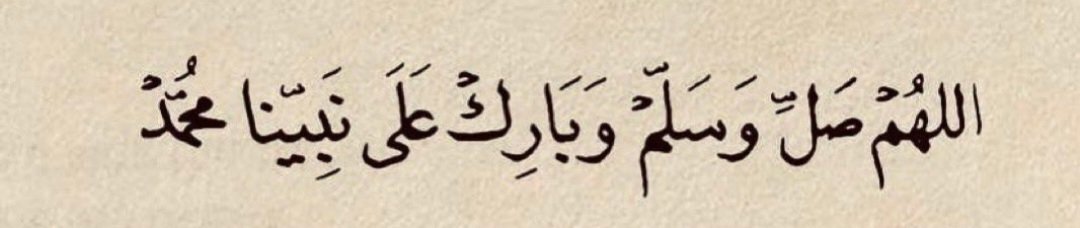 اللهُمْ صَلِّ وَسَلّمْ وَبَارِكْ عَلَى نَبِيّنا محُمَّدْ